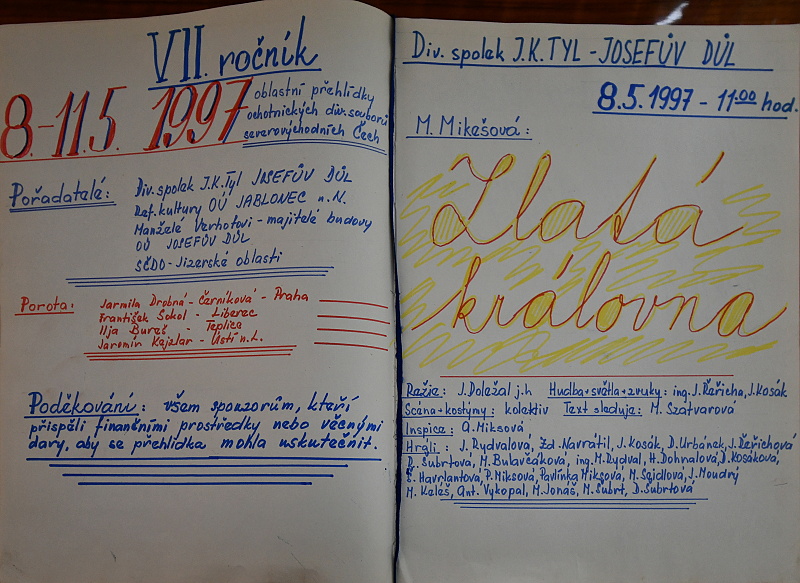 VII. ročník
8.-11.5. 1997
oblastní přehlídky
ochotnických div. souborů
severovýchodních Čech
Pořadatelé:
Div. spolek J.K.Tyl JOSEFŮV DŮL
Ref. kultury OÚ JABLONEC n.N.
Manželé Verhotovi - majitelé budovy
OÚ JOSEFŮV DŮL
SČDO - Jizerské oblasti
Porota:
Jarmila Drobná - Černíková - Praha
František Sokol - Liberec
Ilja Bureš - Teplice
Jaromír Kejzlar - Ústí n.L.
Poděkování: všem sponzorům, kteří
přispěli finančními prostředky nebo věcnými
dary, aby se přehlídka mohla uskutečnit.
Div. spolek J.K.TYL - JOSEFŮV DŮL
8.5.1997 - 11 00 hod.
M. Mikešová:
Zlatá
královna
Režie: J. Doležal j.h Hudba+světla+zvuky: ing. J. Řeřicha, J. Kosák
Scéna+kostýmy: kolektiv Text sleduje: M. Szatvarová
Inspice: A. Miksová
Hráli: J. Rydvalová, Zd. Navrátil, J. Kosák, D. Urbánek, J. Řeřichová
R. Šubrtová, M. Bulavčáková, ing. M. Rydval, H. Dohnalová, D. Kosáková,
Š. Havrlantová, P. Miksová, Pavlínka Miksová, M. Sajdlová, J. Moudrý
M. Keleš, Ant. Vykopal, M. Jonáš, M. Šubrt, D. Šubrtová